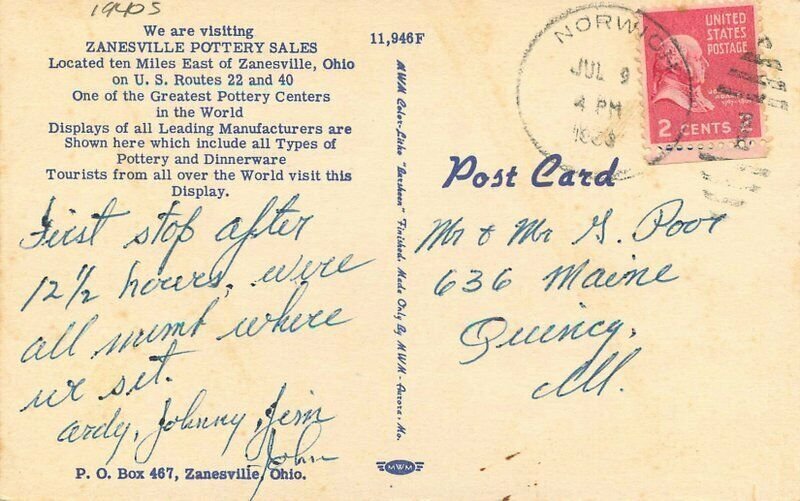 1940s
We are visiting
ZANESVILLE POTTERY SALES
Located ten Miles East of Zanesville, Ohio
on U. S. Routes 22 and 40
One of the Greatest Pottery Centers
in the World
Displays of all Leading Manufacturers are
Shown here which include all Types of
Pottery and Dinnerware
Tourists from all over the World visit this
Display.
First stop after
12 1/2 hours, were
all numb where
we set.
Ardy, Johnny, Jim
John
P. O. Box 467, Zanesville, Ohio.
11,946F
MWM Color-Litho "Larcheen" Finished. Made Only By MWM - Aurora, Mo.
MWM
NORWICH
JUL 9
4 PM
UNITED
STATES
POSTAGE
2 CENTS 2
Post Card
Mr & Mr G. Poor
636 Maine
Quincy,
Ill.